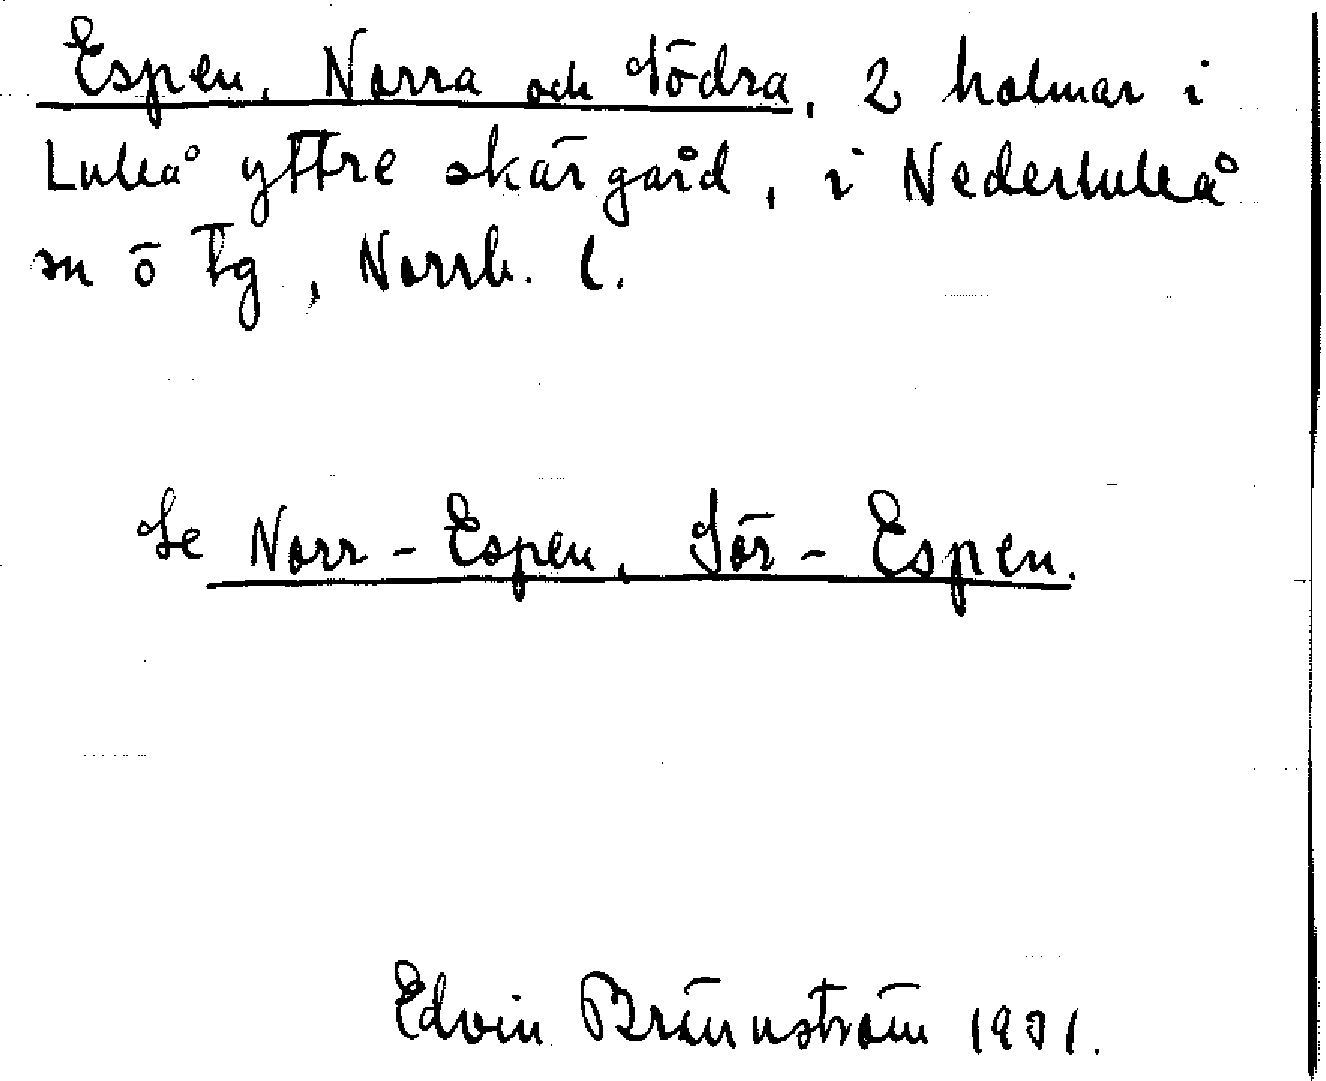 Espen, Norra och Södra, 2 holmar i
Luleå yttre skärgård, i Nederluleå
sn ö tg, Norrb. l.
Se Norr-Espen, Sör-Espen.
Edvin Brännström